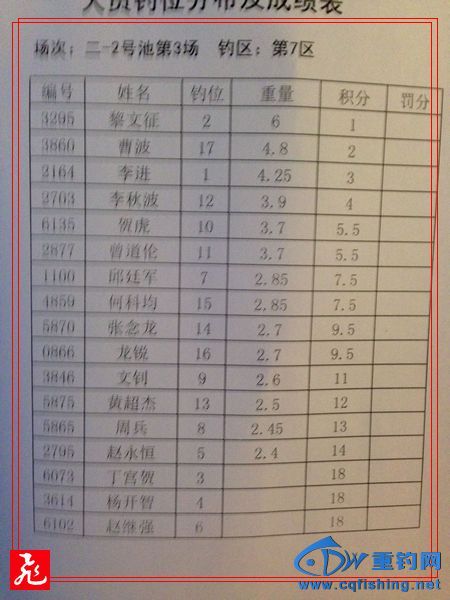 人员钓位分布及成绩表
场次：二-2号池第3场 钓区：第7区
编号 姓名 钓位 重量 积分 罚分
3295 黎文征 2 6 1
3860 曹波 17 4.8 2
2164 李进 1 4.25 3
2703 李秋波 12 3.9 4
6135 贺虎 10 3.7 5.5
2877 曾道伦 11 3.7 5.5
1100 邱廷军 7 2.85 7.5
4859 何科均 15 2.85 7.5
5870 张念龙 14 2.7 9.5
0866 龙锐 16 2.7 9.5
3846 文钊 9 2.6 11
5875 黄超杰 13 2.5 12
5865 周兵 8 2.45 13
2795 赵永恒 5 2.4 14
6073 丁宫贺 3 18
3614 杨开智 4 18
6102 赵继强 6 18
重钓网
www.cqfishing.net